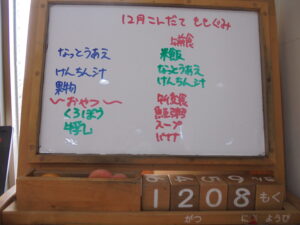 12月こんだて ももぐみ
なっとうあえ
けんちん汁
果物
〜おやつ〜
くろぼう
牛乳
離乳食
果飯
なっとうあえ
けんちん汁
スープ
バナナ
1 2 0 8 もく
がつ にち ようび